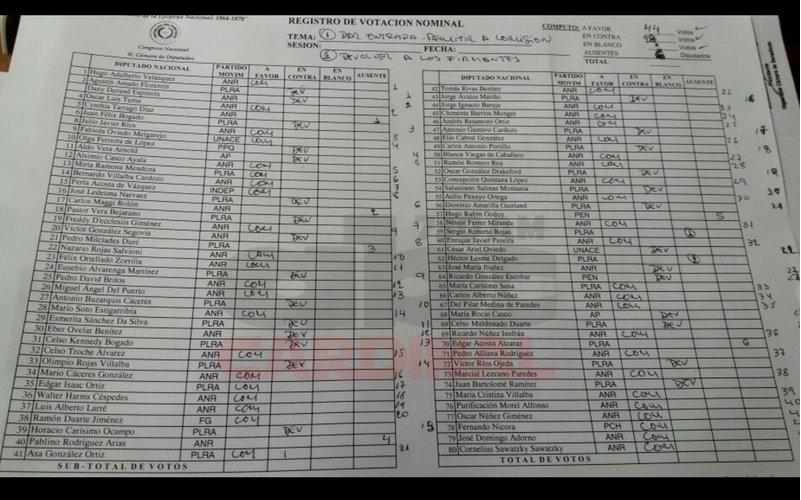 de la Epopeya Nacional: 1864-1870"
Congreso Nacional
H. Cámara de Diputados
REGISTRO DE VOTACION NOMINAL
TEMA: ① DAR ENTRADA. REMITIR A COMISION
SESION: FECHA:
② DEVOLVER A LOS FIRMANTES
COMPUTO: A FAVOR 44 Votos
EN CONTRA Votos
EN BLANCO Votos
AUSENTES 6 Diputados
TOTAL
DIPUTADO NACIONAL PARTIDO MOVIM A FAVOR EN CONTRA EN BLANCO AUSENTE
1 Hugo Adalberto Velázquez ANR COM
2 Agustín Amado Florentín PLRA DEV
3 Dany Durand Espínola ANR COM
4 Oscar Luis Tuma ANR
5 Cynthia Tarragó Díaz ANR COM
6 Juan Félix Bogado PLRA
8 Julio Javier Ríos PLRA DEV
9 Fabiola Oviedo Melgarejo ANR COM
10 Olga Ferreira de López UNACE COM
11 Aldo Vera Arnold PPQ DEV
12 Alsimio Casco Ayala AP DEV
13 Mirta Ramona Mendoza ANR COM
14 Bernardo Villalba Cardozo PLRA COM
15 Perla Acosta de Vázquez ANR COM
16 José Ledesma Narvaez INDEP COM
17 Carlos Maggi Rolón PLRA DEV
18 Pastor Vera Bejarano ANR 2
19 Freddy D'ecclesiis Giménez PLRA DEV
20 Víctor González Segovia ANR COM
21 Pedro Milciades Duré PLRA DEV
22 Nazario Rojas Salvioni ANR 3
23 Félix Ortellado Zorrilla ANR COM
24 Eusebio Alvarenga Martínez PLRA COM
25 Pedro David Britos PLRA DEV
26 Miguel Ángel Del Puerto ANR COM
27 Antonio Buzarquis Cáceres PLRA COM
28 Mario Soto Estigarribia PLRA DEV
29 Esmerita Sánchez Da Silva ANR COM
30 Eber Ovelar Benítez PLRA DEV
31 Celso Kennedy Bogado PLRA DEV
32 Celso Troche Álvarez ANR COM
33 Olimpio Rojas Villalba PLRA DEV
34 Mario Cáceres González ANR COM
35 Edgar Isaac Ortiz PLRA COM
36 Walter Harms Céspedes ANR COM
37 Luis Alberto Larré ANR COM
38 Ramón Duarte Jiménez FG COM
39 Horacio Carísimo Ocampo PLRA DEV
40 Pablino Rodríguez Arias ANR 4
41 Asa González Ortiz PLRA COM
SUB-TOTAL DE VOTOS
DIPUTADO NACIONAL PARTIDO MOVIM A FAVOR EN CONTRA EN BLANCO AUSENTE
42 Tomás Rivas Benítez ANR COM 21
43 Jorge Avalos Mariño PLRA DEV 16
44 Jorge Ignacio Baruja ANR COM
45 Clemente Barrios Monges ANR COM
46 Andrés Retamozo Ortiz ANR COM
47 Antonio Gustavo Cardozo PLRA DEV 17
48 Elio Cabral González ANR COM 26
49 Carlos Antonio Portillo PLRA DEV 18
50 Blanca Vargas de Caballero ANR COM 27
51 Ramón Romero Roa ANR COM 28
52 Oscar González Drakeford PLRA DEV
53 Concepción Quintana López ANR COM 29
54 Salustiano Salinas Montanía PLRA DEV
55 Atilio Penayo Ortega ANR COM 30
56 Dionisio Amarilla Guirland PLRA DEV
57 Hugo Rubin Godoy PEN 5
58 Néstor Ferrer Miranda ANR COM
59 Sergio Roberto Rojas PLRA
60 Enrique Javier Pereira ANR COM 32
61 César Ariel Oviedo UNACE DEV
62 Héctor Lesme Delgado PLRA
63 José María Ibáñez ANR DEV
64 Ricardo González Escobar PEN DEV
65 María Carísimo Sosa PLRA COM 33
66 Carlos Alberto Núñez ANR COM
67 Del Pilar Medina de Paredes ANR COM 35
68 María Rocío Casco AP DEV
69 Celso Maldonado Duarte PLRA DEV
69 Ricardo Núñez Insfrán ANR COM 36
70 Edgar Acosta Alcaraz PLRA 6
71 Pedro Alliana Rodríguez ANR COM
72 Víctor Ríos Ojeda PLRA DEV
73 Marcial Lezcano Paredes ANR COM
74 Juan Bartolomé Ramírez PLRA DEV
75 María Cristina Villalba ANR COM
76 Purificación Morel Alfonso ANR COM
77 Oscar Núñez Giménez ANR COM
78 Fernando Nicora PCH COM
79 José Domingo Adorno ANR COM
80 Cornelius Sawatzky Sawatzky ANR COM
TOTAL DE VOTOS
CARDINAL